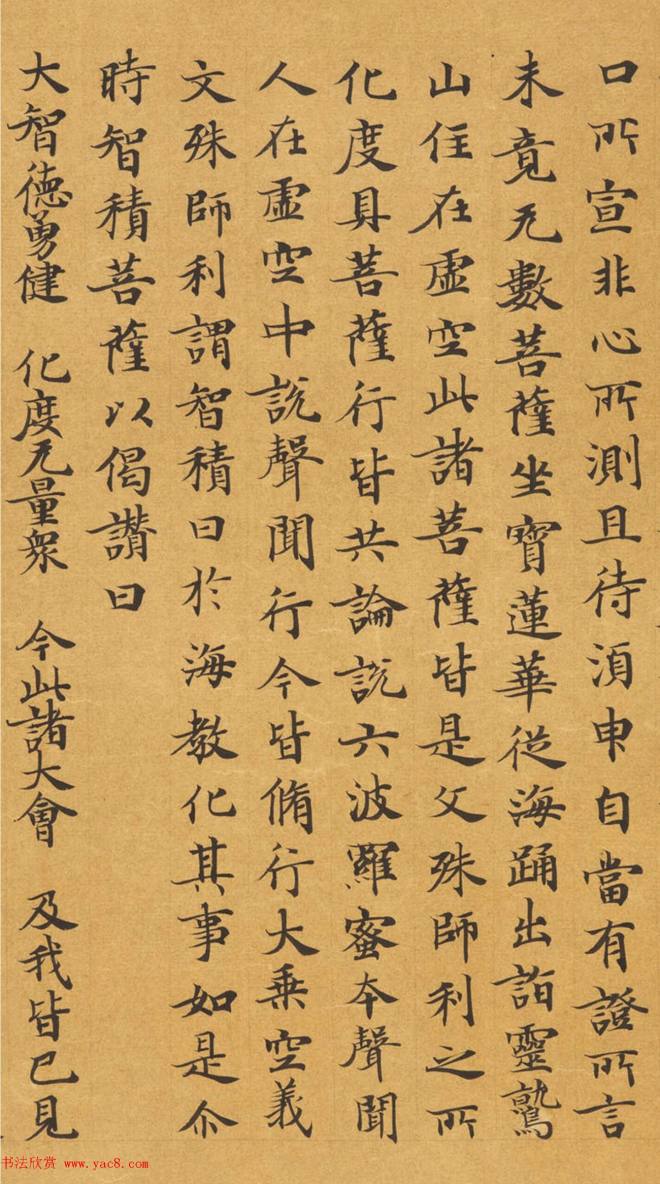 口所宣非心所測且待湏申自當有證所言
未竟无數菩薩坐寶蓮華從海踊出詣靈鷲
山住在虛空此諸菩薩皆是文殊師利之所
化度具菩薩行皆共論說六波羅蜜本聲聞
人在虛空中說聲聞行今皆脩行大乘空義
文殊師利謂智積曰於海教化其事如是尒
時智積菩薩以偈讃曰
大智德勇健　化度无量衆　今此諸大會　及我皆已見
书法欣赏 www.yac8.com